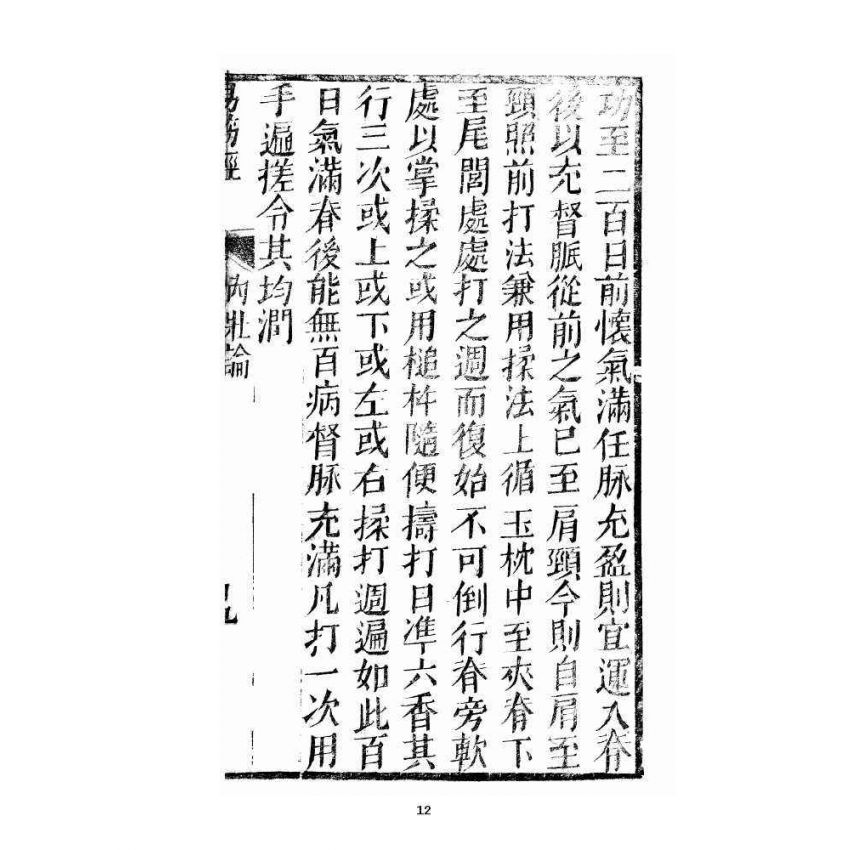 功至二百日前懷氣滿任脉充盈則宜運入脊
後以充督脈從前之氣已至肩頸今則自肩至
頸照前打法兼用揉法上循玉枕中至夾脊下
至尾閭處處打之週而復始不可倒行脊旁軟
處以掌揉之或用槌杵隨便擣打日準六香其
行三次或上或下或左或右揉打週遍如此百
日氣滿脊後能無百病督脉充滿凡打一次用
手遍搓令其均潤
易筋經
內壯論
九
12